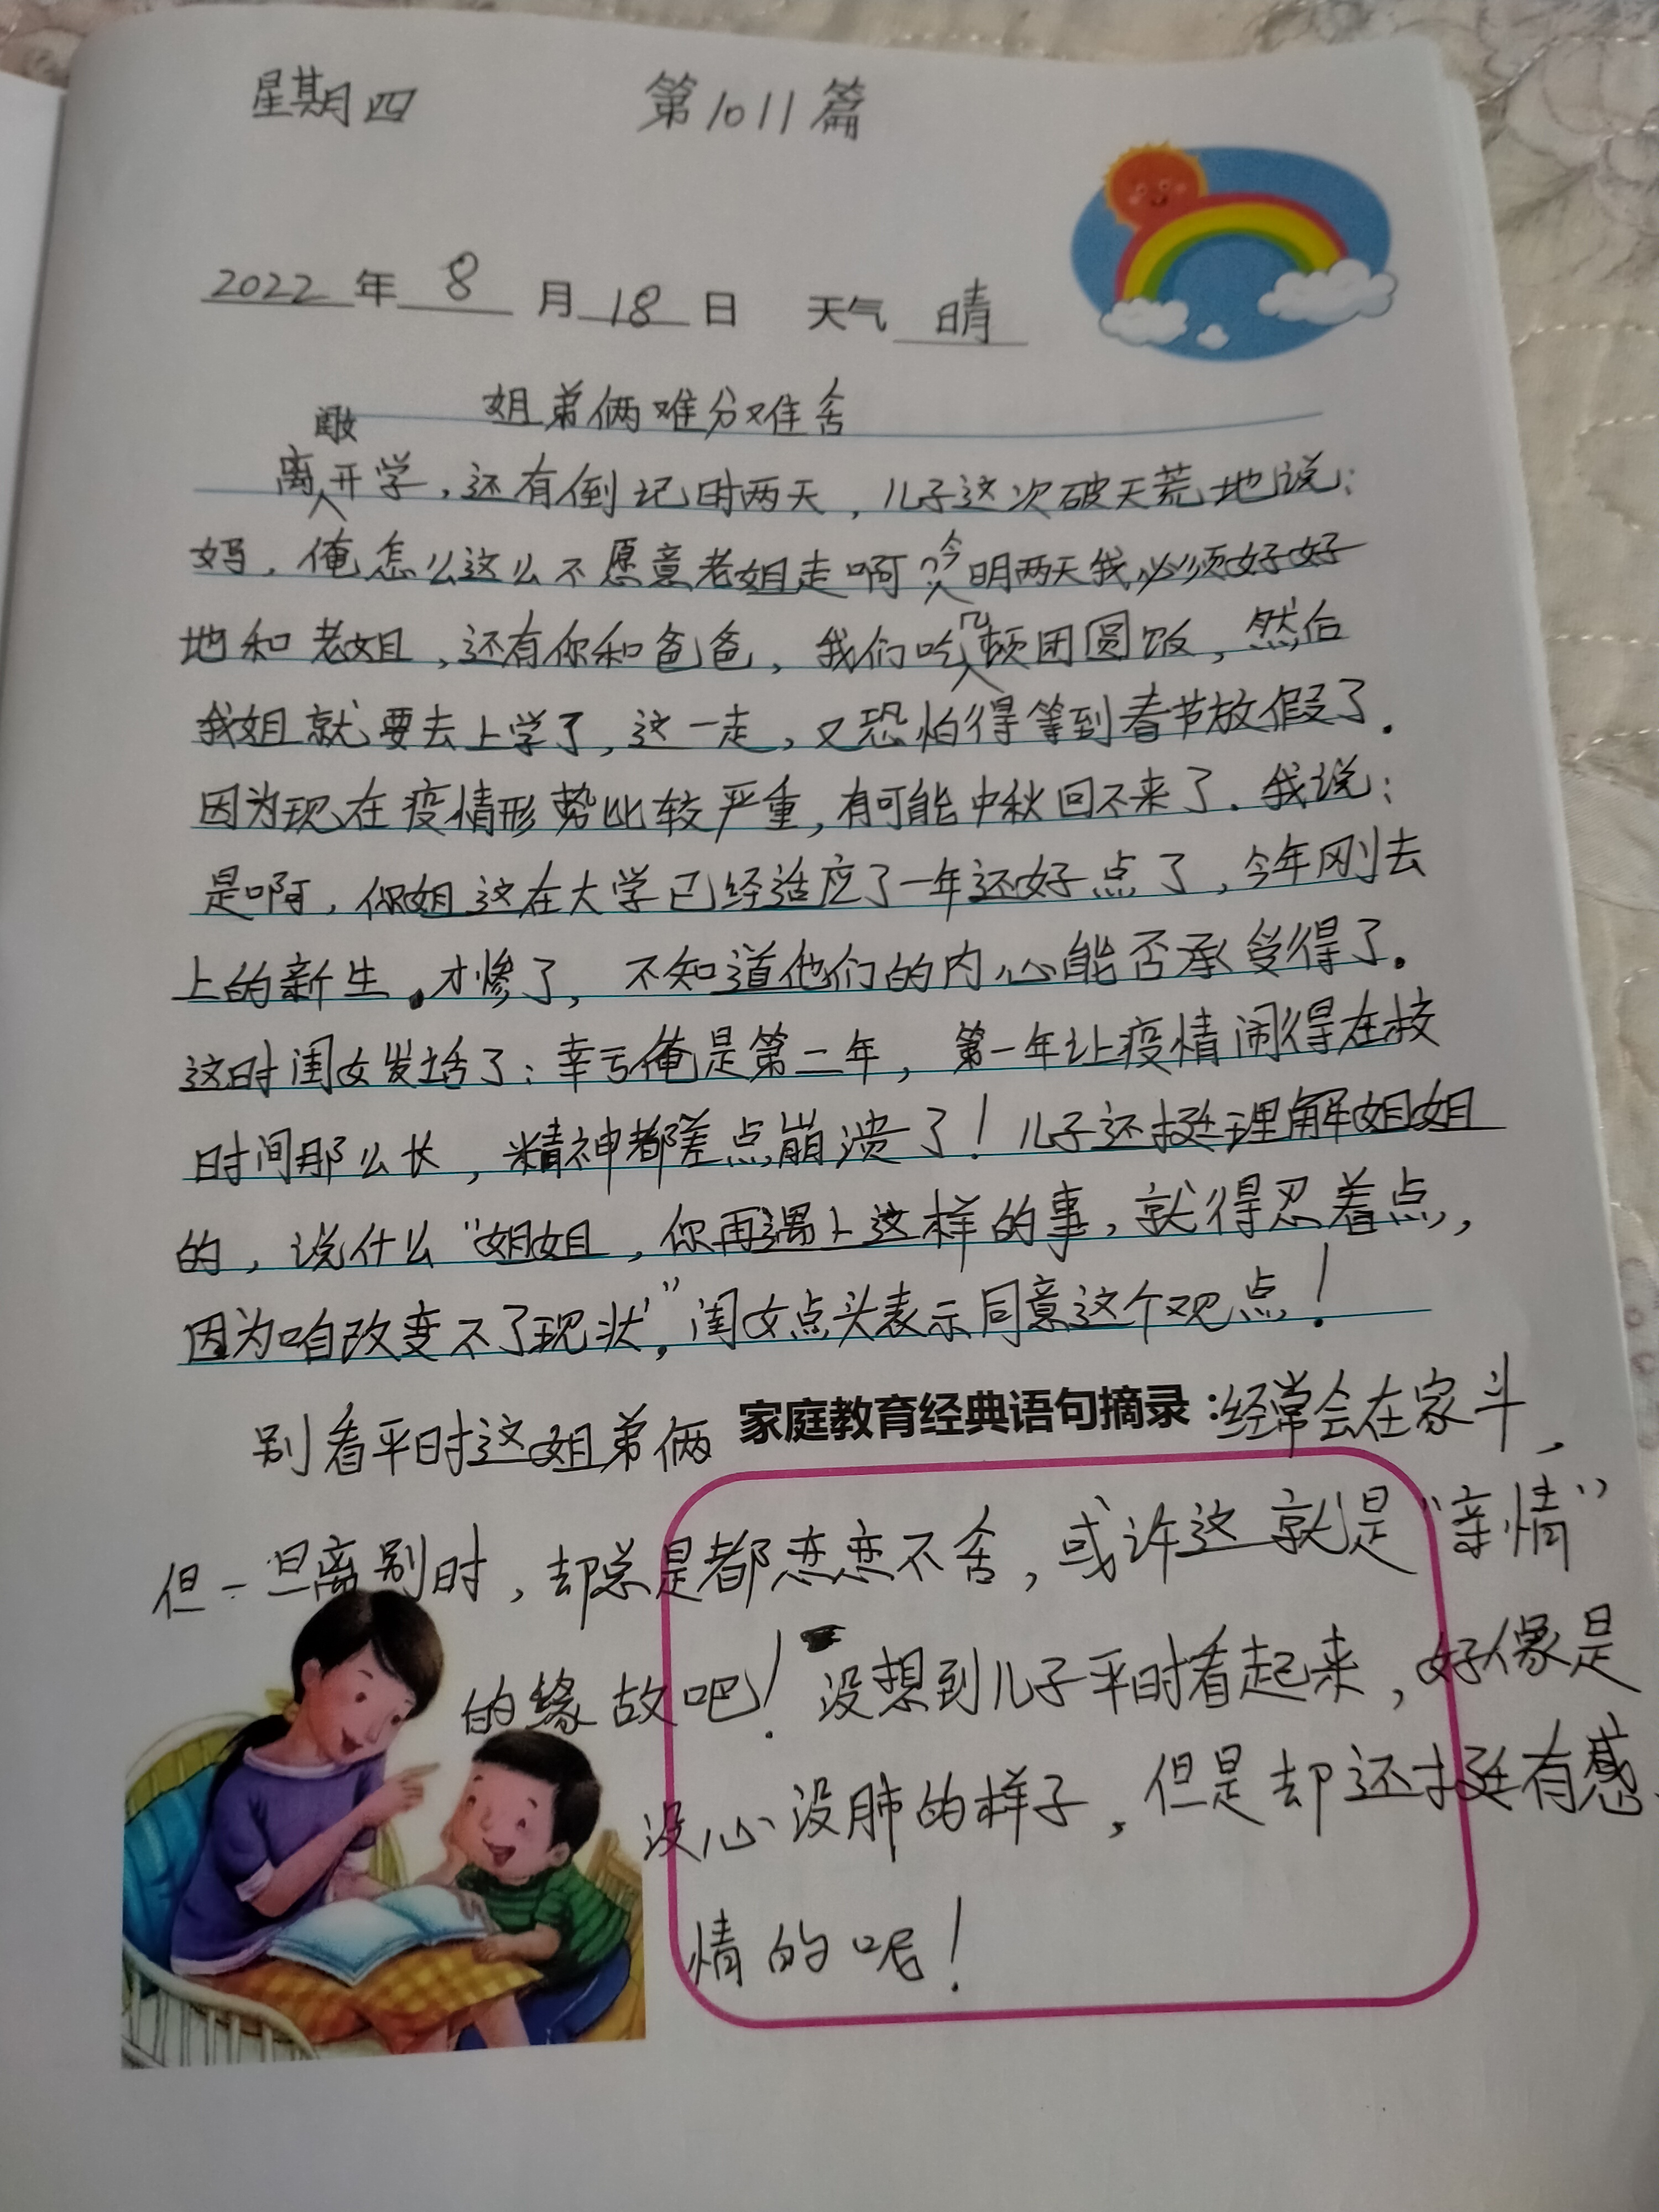 星期四 第1011篇
2022年8月18日 天气 晴
姐弟俩难分难舍
离闺女开学，还有倒记时两天，儿子这次破天荒地说：
妈，俺怎么这么不愿意老姐走啊？今明两天我必须好好
地和老姐，还有你和爸爸，我们吃几顿团圆饭，然后
我姐就要去上学了，这一走，又恐怕得等到春节放假了.
因为现在疫情形势比较严重，有可能中秋回不来了.我说：
是啊，你姐这在大学已经适应了一年还好点了，今年刚去
上的新生，才惨了，不知道他们的内心能否承受得了。
这时闺女发话了：幸亏俺是第二年，第一年让疫情闹得在校
时间那么长，精神都差点崩溃了！儿子还挺理解姐姐
的，说什么“姐姐，你再遇上这样的事，就得忍着点，
因为咱改变不了现状，”闺女点头表示同意这个观点！
别看平时这姐弟俩 家庭教育经典语句摘录：经常会在家斗，
但一旦离别时，却总是都恋恋不舍，或许这就是“亲情”
的缘故吧！没想到儿子平时看起来，好像是
没心没肺的样子，但是却还挺有感
情的呢！